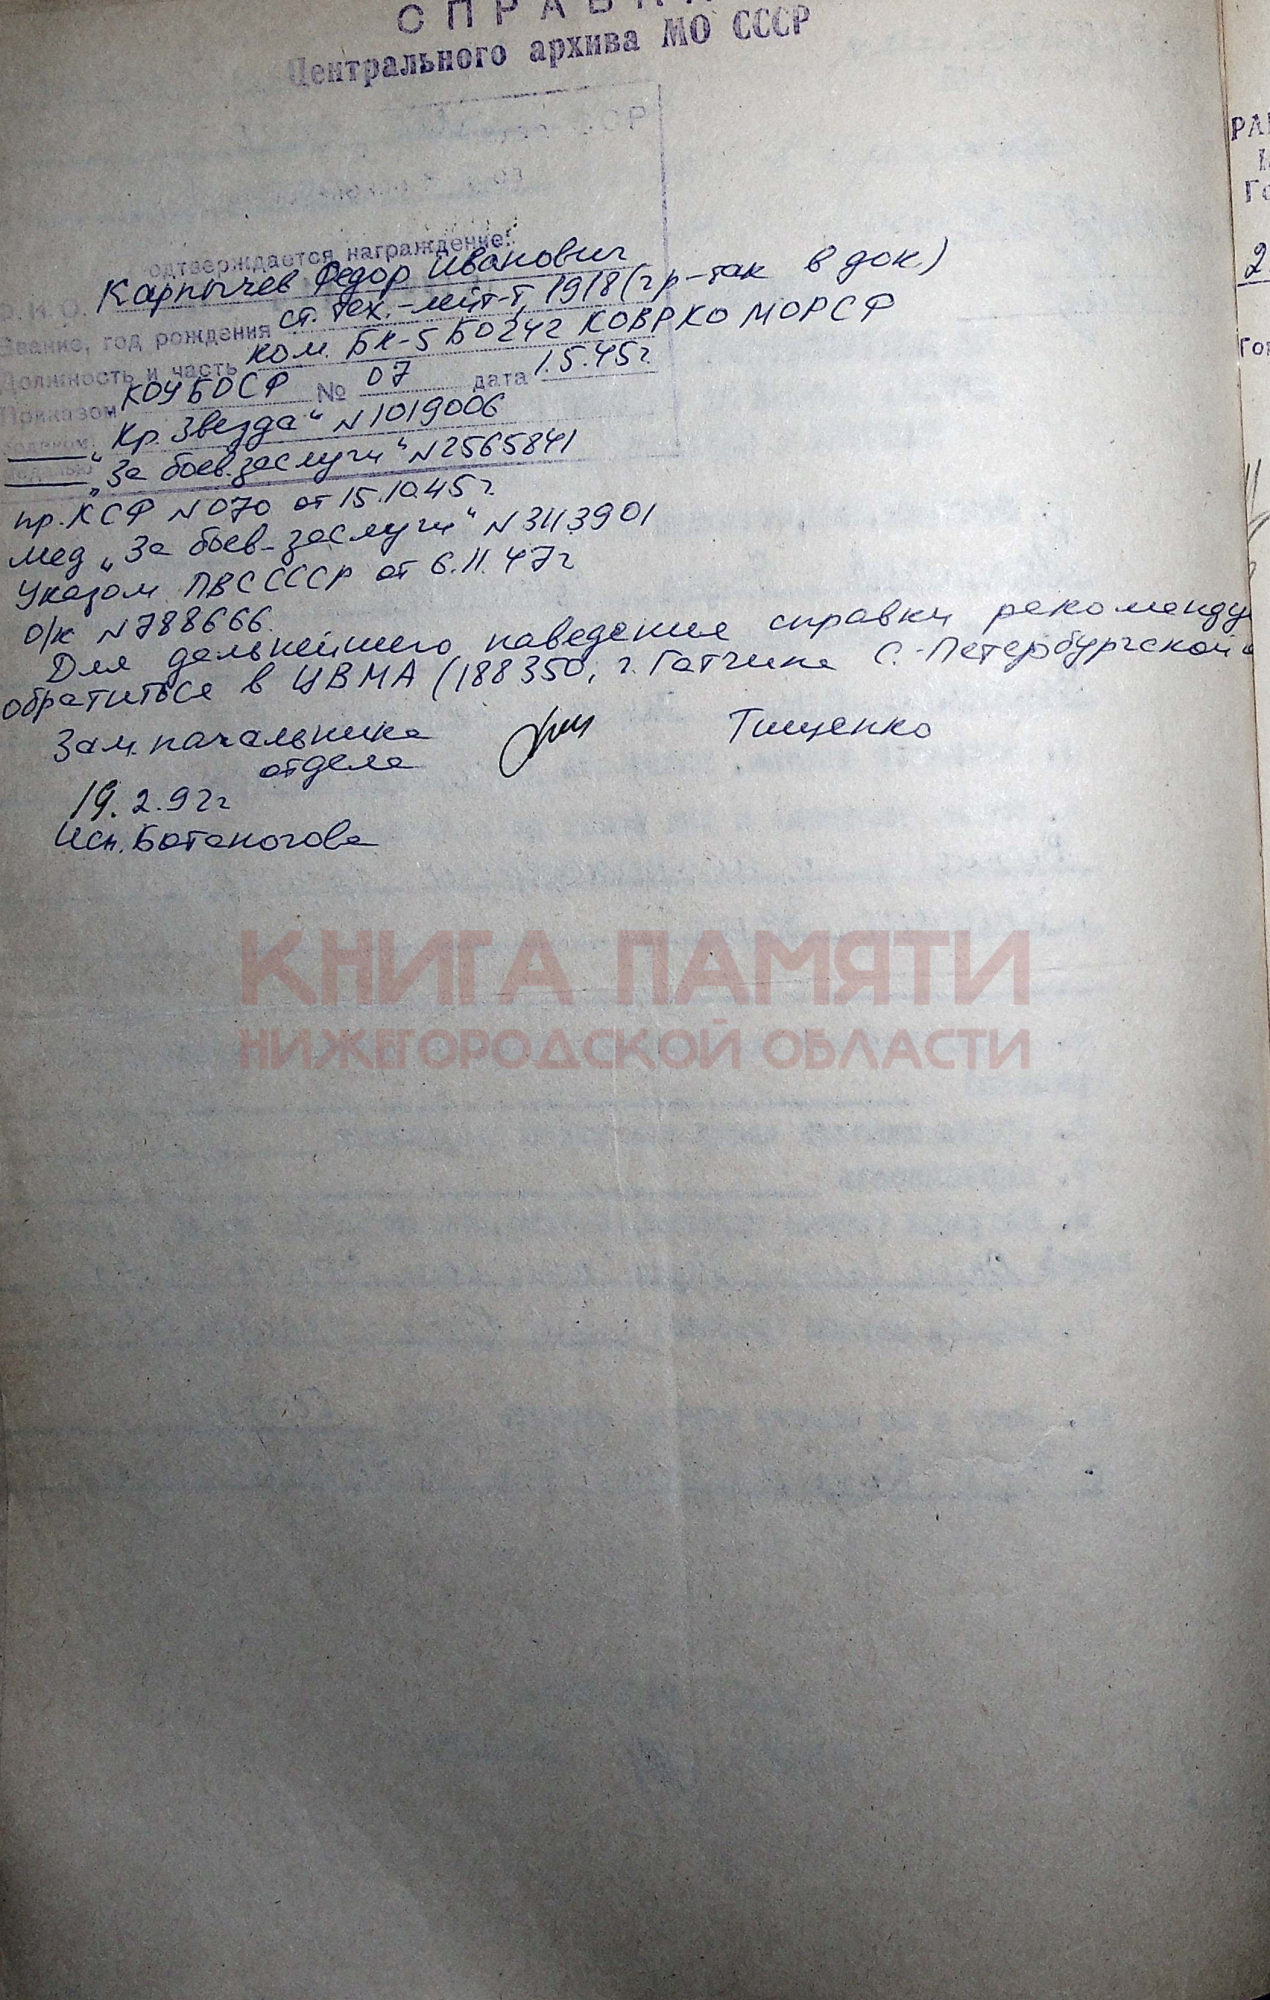 СПРАВКА
Центрального архива МО СССР
подтверждается награждение:
Ф.И.О. Карпычев Федор Иванович
Звание, год рождения ст. тех.-лейт-т, 1918 (гр-так в док.)
Должность и часть ком. БК-5 БО242 КОВРКО МОРСФ
Приказом КОУБОСФ № 07 дата 1.5.45г.
орденом "Кр. Звезда" N 1019006
медалью "За боев.заслуги" N 2565841
пр. КСФ N 070 от 15.10.45г.
мед "За боев-заслуги" N 3113901
Указом ПВС СССР от 6.11.47г
о/к N 788666.
Для дальнейшего наведения справки рекоменду
обратиться в ЦВМА (188350, г. Гатчина С.-Петербургской
Зам. начальника Тищенко
отдела
19.2.92г
Исп. Батаногова
КНИГА ПАМЯТИ
НИЖЕГОРОДСКОЙ ОБЛАСТИ